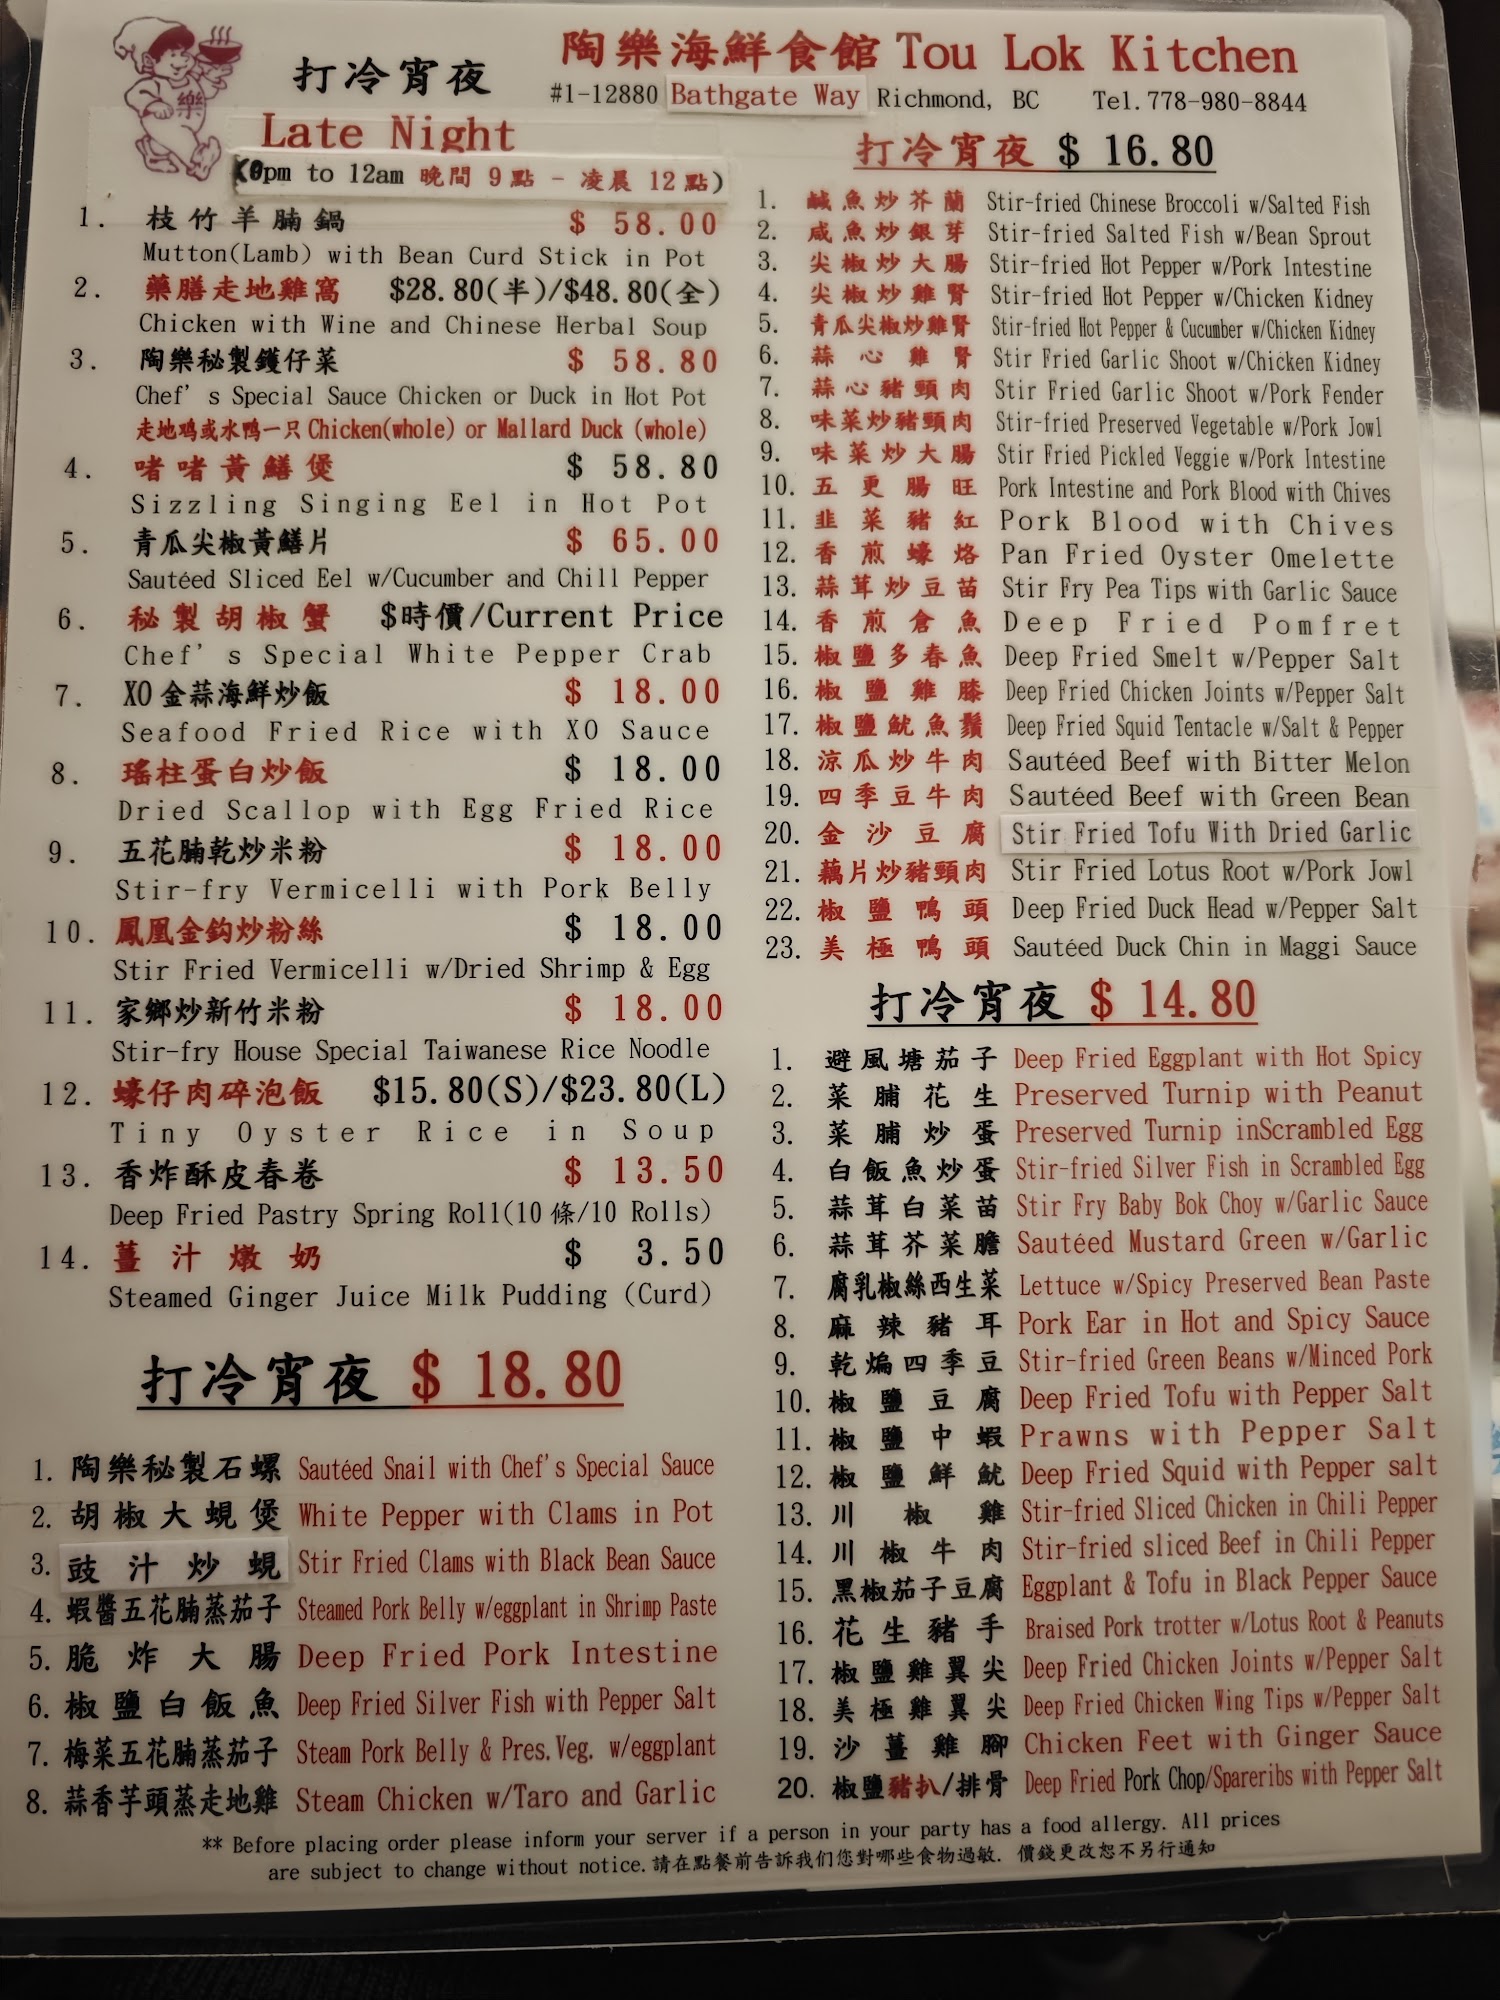 陶樂海鮮食館 Tou Lok Kitchen
#1-12880 Bathgate Way Richmond, BC Tel.778-980-8844
樂
打冷宵夜
Late Night
pm to 12am 晚間 9點 - 凌晨 12點)
1. 枝竹羊腩鍋 $ 58.00
Mutton(Lamb) with Bean Curd Stick in Pot
2. 藥膳走地雞窩 $28.80(半)/$48.80(全)
Chicken with Wine and Chinese Herbal Soup
3. 陶樂秘製鑊仔菜 $ 58.80
Chef's Special Sauce Chicken or Duck in Hot Pot
走地鸡或水鸭一只 Chicken(whole) or Mallard Duck (whole)
4. 啫啫黃鱔煲 $ 58.80
Sizzling Singing Eel in Hot Pot
5. 青瓜尖椒黃鱔片 $ 65.00
Sautéed Sliced Eel w/Cucumber and Chill Pepper
6. 秘製胡椒蟹 $時價/Current Price
Chef's Special White Pepper Crab
7. XO金蒜海鮮炒飯 $ 18.00
Seafood Fried Rice with XO Sauce
8. 瑤柱蛋白炒飯 $ 18.00
Dried Scallop with Egg Fried Rice
9. 五花腩乾炒米粉 $ 18.00
Stir-fry Vermicelli with Pork Belly
10. 鳳凰金鈎炒粉絲 $ 18.00
Stir Fried Vermicelli w/Dried Shrimp & Egg
11. 家鄉炒新竹米粉 $ 18.00
Stir-fry House Special Taiwanese Rice Noodle
12. 蠔仔肉碎泡飯 $15.80(S)/$23.80(L)
Tiny Oyster Rice in Soup
13. 香炸酥皮春卷 $ 13.50
Deep Fried Pastry Spring Roll(10條/10 Rolls)
14. 薑汁燉奶 $ 3.50
Steamed Ginger Juice Milk Pudding (Curd)
打冷宵夜 $ 18.80
1. 陶樂秘製石螺 Sautéed Snail with Chef's Special Sauce
2. 胡椒大蜆煲 White Pepper with Clams in Pot
3. 豉汁炒蜆 Stir Fried Clams with Black Bean Sauce
4. 蝦醬五花腩蒸茄子 Steamed Pork Belly w/eggplant in Shrimp Paste
5. 脆炸大腸 Deep Fried Pork Intestine
6. 椒鹽白飯魚 Deep Fried Silver Fish with Pepper Salt
7. 梅菜五花腩蒸茄子 Steam Pork Belly & Pres.Veg. w/eggplant
8. 蒜香芋頭蒸走地雞 Steam Chicken w/Taro and Garlic
打冷宵夜 $ 16.80
1. 鹹魚炒芥蘭 Stir-fried Chinese Broccoli w/Salted Fish
2. 咸魚炒銀芽 Stir-fried Salted Fish w/Bean Sprout
3. 尖椒炒大腸 Stir-fried Hot Pepper w/Pork Intestine
4. 尖椒炒雞腎 Stir-fried Hot Pepper w/Chicken Kidney
5. 青瓜尖椒炒雞腎 Stir-fried Hot Pepper & Cucumber w/Chicken Kidney
6. 蒜心雞腎 Stir Fried Garlic Shoot w/Chicken Kidney
7. 蒜心豬頸肉 Stir Fried Garlic Shoot w/Pork Fender
8. 味菜炒豬頸肉 Stir-fried Preserved Vegetable w/Pork Jowl
9. 味菜炒大腸 Stir Fried Pickled Veggie w/Pork Intestine
10. 五更腸旺 Pork Intestine and Pork Blood with Chives
11. 韭菜豬紅 Pork Blood with Chives
12. 香煎蠔烙 Pan Fried Oyster Omelette
13. 蒜茸炒豆苗 Stir Fry Pea Tips with Garlic Sauce
14. 香煎倉魚 Deep Fried Pomfret
15. 椒鹽多春魚 Deep Fried Smelt w/Pepper Salt
16. 椒鹽雞膝 Deep Fried Chicken Joints w/Pepper Salt
17. 椒鹽魷魚鬚 Deep Fried Squid Tentacle w/Salt & Pepper
18. 涼瓜炒牛肉 Sautéed Beef with Bitter Melon
19. 四季豆牛肉 Sautéed Beef with Green Bean
20. 金沙豆腐 Stir Fried Tofu With Dried Garlic
21. 藕片炒豬頸肉 Stir Fried Lotus Root w/Pork Jowl
22. 椒鹽鴨頭 Deep Fried Duck Head w/Pepper Salt
23. 美極鴨頭 Sautéed Duck Chin in Maggi Sauce
打冷宵夜 $ 14.80
1. 避風塘茄子 Deep Fried Eggplant with Hot Spicy
2. 菜脯花生 Preserved Turnip with Peanut
3. 菜脯炒蛋 Preserved Turnip inScrambled Egg
4. 白飯魚炒蛋 Stir-fried Silver Fish in Scrambled Egg
5. 蒜茸白菜苗 Stir Fry Baby Bok Choy w/Garlic Sauce
6. 蒜茸芥菜膽 Sautéed Mustard Green w/Garlic
7. 腐乳椒絲西生菜 Lettuce w/Spicy Preserved Bean Paste
8. 麻辣豬耳 Pork Ear in Hot and Spicy Sauce
9. 乾煸四季豆 Stir-fried Green Beans w/Minced Pork
10. 椒鹽豆腐 Deep Fried Tofu with Pepper Salt
11. 椒鹽中蝦 Prawns with Pepper Salt
12. 椒鹽鮮魷 Deep Fried Squid with Pepper salt
13. 川椒雞 Stir-fried Sliced Chicken in Chili Pepper
14. 川椒牛肉 Stir-fried sliced Beef in Chili Pepper
15. 黑椒茄子豆腐 Eggplant & Tofu in Black Pepper Sauce
16. 花生豬手 Braised Pork trotter w/Lotus Root & Peanuts
17. 椒鹽雞翼尖 Deep Fried Chicken Joints w/Pepper Salt
18. 美極雞翼尖 Deep Fried Chicken Wing Tips w/Pepper Salt
19. 沙薑雞腳 Chicken Feet with Ginger Sauce
20. 椒鹽豬扒/排骨 Deep Fried Pork Chop/Spareribs with Pepper Salt
** Before placing order please inform your server if a person in your party has a food allergy. All prices
are subject to change without notice.請在點餐前告訴我们您對哪些食物過敏. 價錢更改恕不另行通知